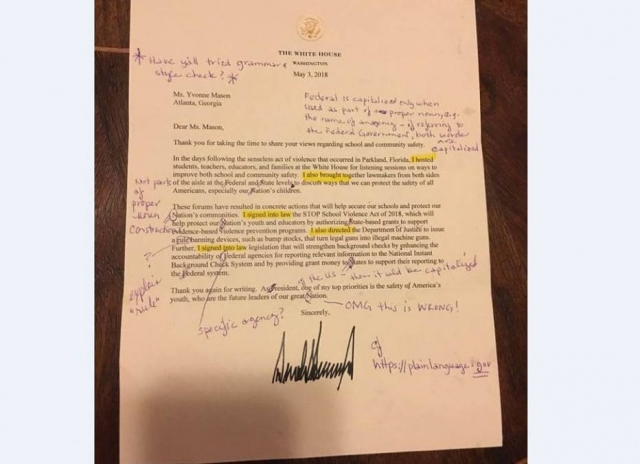 THE WHITE HOUSE
WASHINGTON
* Have y'all tried grammar &
style check? *
May 3, 2018
Ms. Yvonne Mason
Atlanta, Georgia
Federal is capitalized only when
used as part of proper noun, e.g.
the name of an agency - if referring to
the Federal Government, both words
are
capitalized
Dear Ms. Mason,
Thank you for taking the time to share your views regarding school and community safety.
In the days following the senseless act of violence that occurred in Parkland, Florida, I hosted
students, teachers, educators, and families at the White House for listening sessions on ways to
improve both school and community safety. I also brought together lawmakers from both sides
of the aisle at the Federal and State levels to discuss ways that we can protect the safety of all
Americans, especially our Nation's children.
Not part
of
proper
noun
construction
These forums have resulted in concrete actions that will help secure our schools and protect our
Nation's communities. I signed into law the STOP School Violence Act of 2018, which will
help protect our Nation's youth and educators by authorizing State-based grants to support
evidence-based violence prevention programs. I also directed the Department of Justice to issue
a rule banning devices, such as bump stocks, that turn legal guns into illegal machine guns.
Further, I signed into law legislation that will strengthen background checks by enhancing the
accountability of Federal agencies for reporting relevant information to the National Instant
Background Check System and by providing grant money to States to support their reporting to
the Federal system.
?
explain
"rule"
of the US - then it would be capitalized
Thank you again for writing. As President, one of my top priorities is the safety of America's
youth, who are the future leaders of our great Nation.
OMG this is WRONG!
specific agency?
Sincerely,
cf
https://plainlanguage.gov